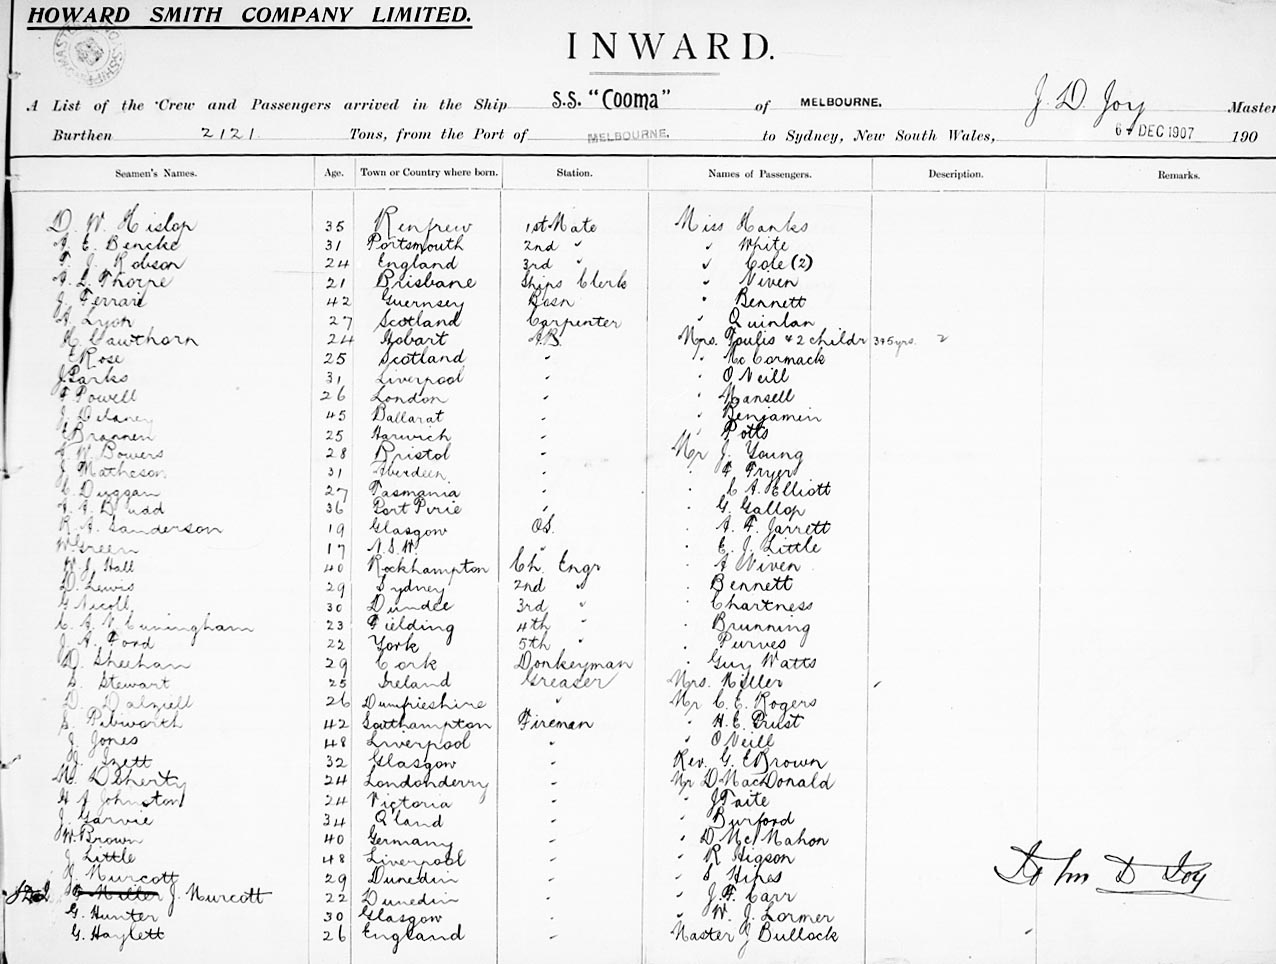 HOWARD SMITH COMPANY LIMITED.
INWARD.
A List of the Crew and Passengers arrived in the Ship S.S. "Cooma" of MELBOURNE. J. D. Joy Master
Burthen 2121 Tons, from the Port of MELBOURNE. to Sydney, New South Wales, 6 - DEC 1907 190
Seamen's Names. Age. Town or Country where born. Station. Names of Passengers. Description. Remarks.
D. W. Hislop 35 Renfrew 1st Mate Miss Hanks
A. E. Bencke 31 Portsmouth 2nd " " White
T. J. Robson 24 England 3rd " " Cole (2)
A. L. Thorpe 21 Brisbane Ships Clerk " Niven
J. Ferrari 42 Guernsey Bosn " Bennett
A. Lyon 27 Scotland Carpenter " Quinlan
H. Cawthorn 24 Hobart A.B. Mrs. Foulis & 2 childr 3+5 yrs. 2
E Rose 25 Scotland " " Mc Cormack
J Parks 31 Liverpool " " O Neill
F Powell 26 London " " Mansell
J. Delaney 45 Ballarat " " Benjamin
E Brannen 25 Harwich " " Potts
A. W. Bowers 28 Bristol " Mr J. Young
J. Matheson 31 Aberdeen " " F Fryer
C. Duggan 27 Tasmania " " C A. Elliott
A. A. Budd 36 Port Pirie " " G. Gallop
R. A. Sanderson 19 Glasgow OS. " A. F. Jarrett
W Green 17 N.S.W. " " E. J. Little
W. J. Hall 40 Rockhampton Ch. Engr " A Niven
D. Lewis 29 Sydney 2nd " " Bennett
G. Nicoll 30 Dundee 3rd " " Chartness
C. A. V. Cuningham 23 Fielding 4th " " Brunning
J. A. Ford 22 York 5th " " Purves
D. Sheehan 29 Cork Donkeyman " Guy Watts
S. Stewart 25 Ireland Greaser Mrs. Miller
D. Dalziell 26 Dumfrieshire " Mr C. E. Rogers
S. Pibworth 42 Southampton Fireman " H. E. Prust
J. Jones 48 Liverpool " " O Neill
H. Izett 32 Glasgow " Rev. G. E Brown
M. Doherty 24 Londonderry " Mr D MacDonald
H J Johnston 24 Victoria " " J Taite
J. Garvie 34 Q'land " " Burford
W. Brown 40 Germany " " D. Mc Mahon
J. Little 48 Liverpool " " R Higson
J. Murcott 29 Dunedin " " S Hines
J. Murcott 22 Dunedin " " J. F. Carr
G. Hunter 30 Glasgow " " W. J. Lormer
G. Haylett 26 England " Master J Bullock
John D Joy